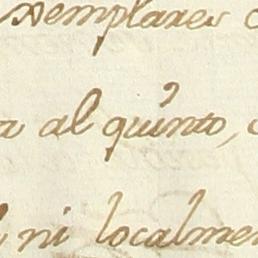 exemplares
al quinto,
ni localmen